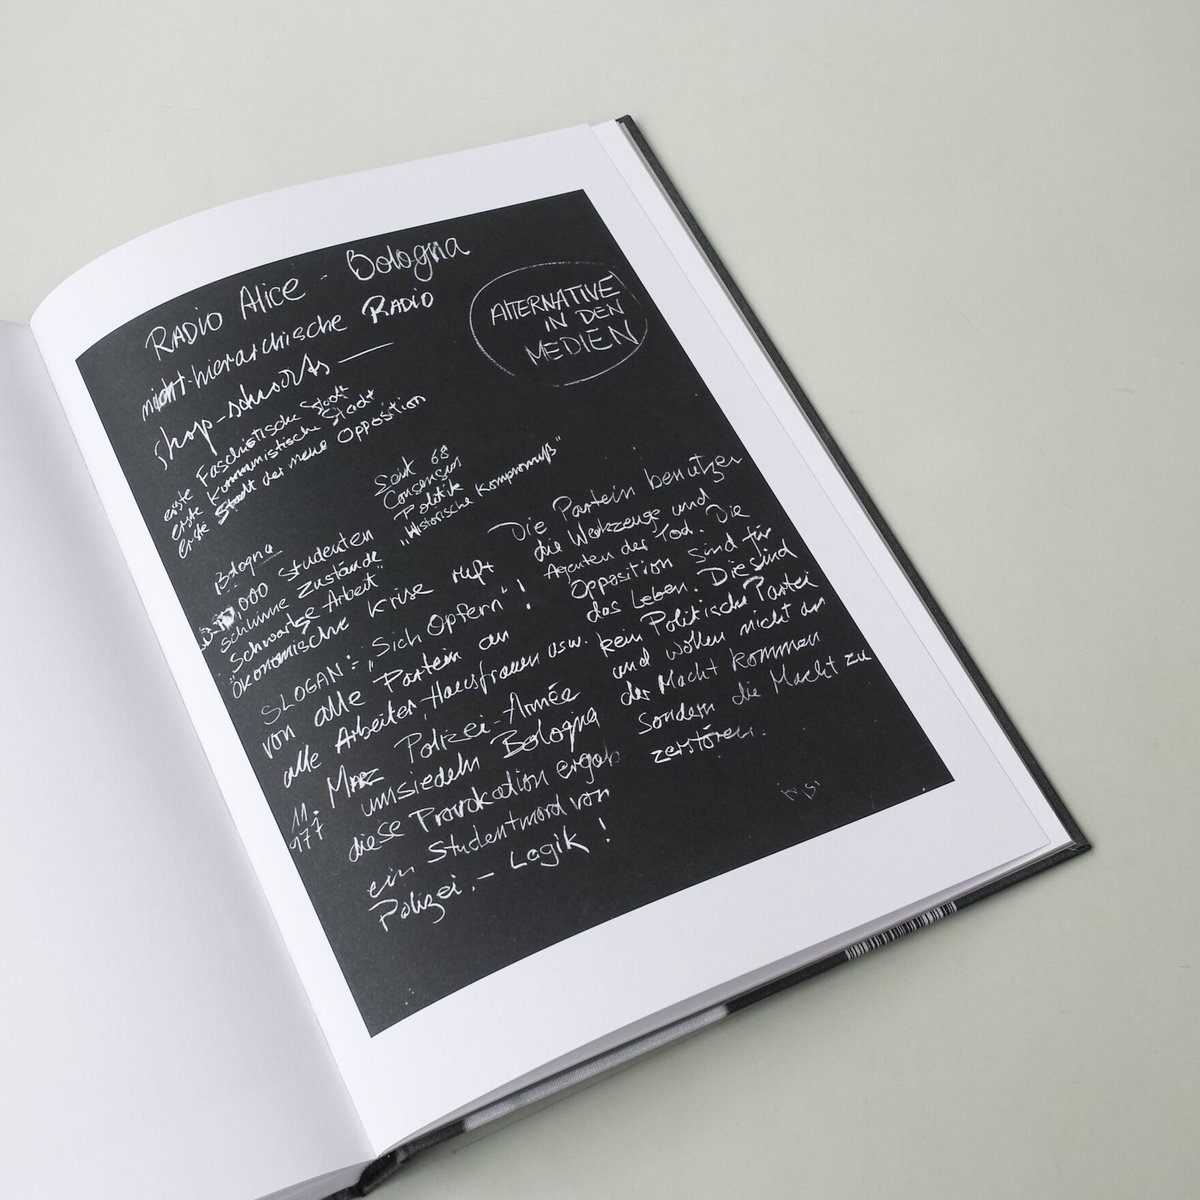 RADIO Alice - Bologna
nicht-hierarchische RADIO
ALTERNATIVE
IN DEN
MEDIEN
erste Faschistische Stadt
erste Kommunistische Stadt
erste Stadt der neue Opposition
Seit 68
Consensus
Politik
„Historische Kompromiß“
Bologna
000 Studenten
schlimme Zustände
Schwartze Arbeit
Ökonomische Krise ruft
SLOGAN:- „Sich Opfern“!
von alle Partein an
alle Arbeiter, Hausfrauen usw.
11. März Polizei-Armée
977 umsiedeln Bologna
diese Provokation ergab
ein Studentmord von
Polizei.- Logik!
Die Partein benutzen
die Werkzeuge und
Agenten der Tod. Die
Opposition sind für
das Leben. Die sind
kein Politische Partei
und wollen nicht an
der Macht kommen
Sondern die Macht zu
zerstören.